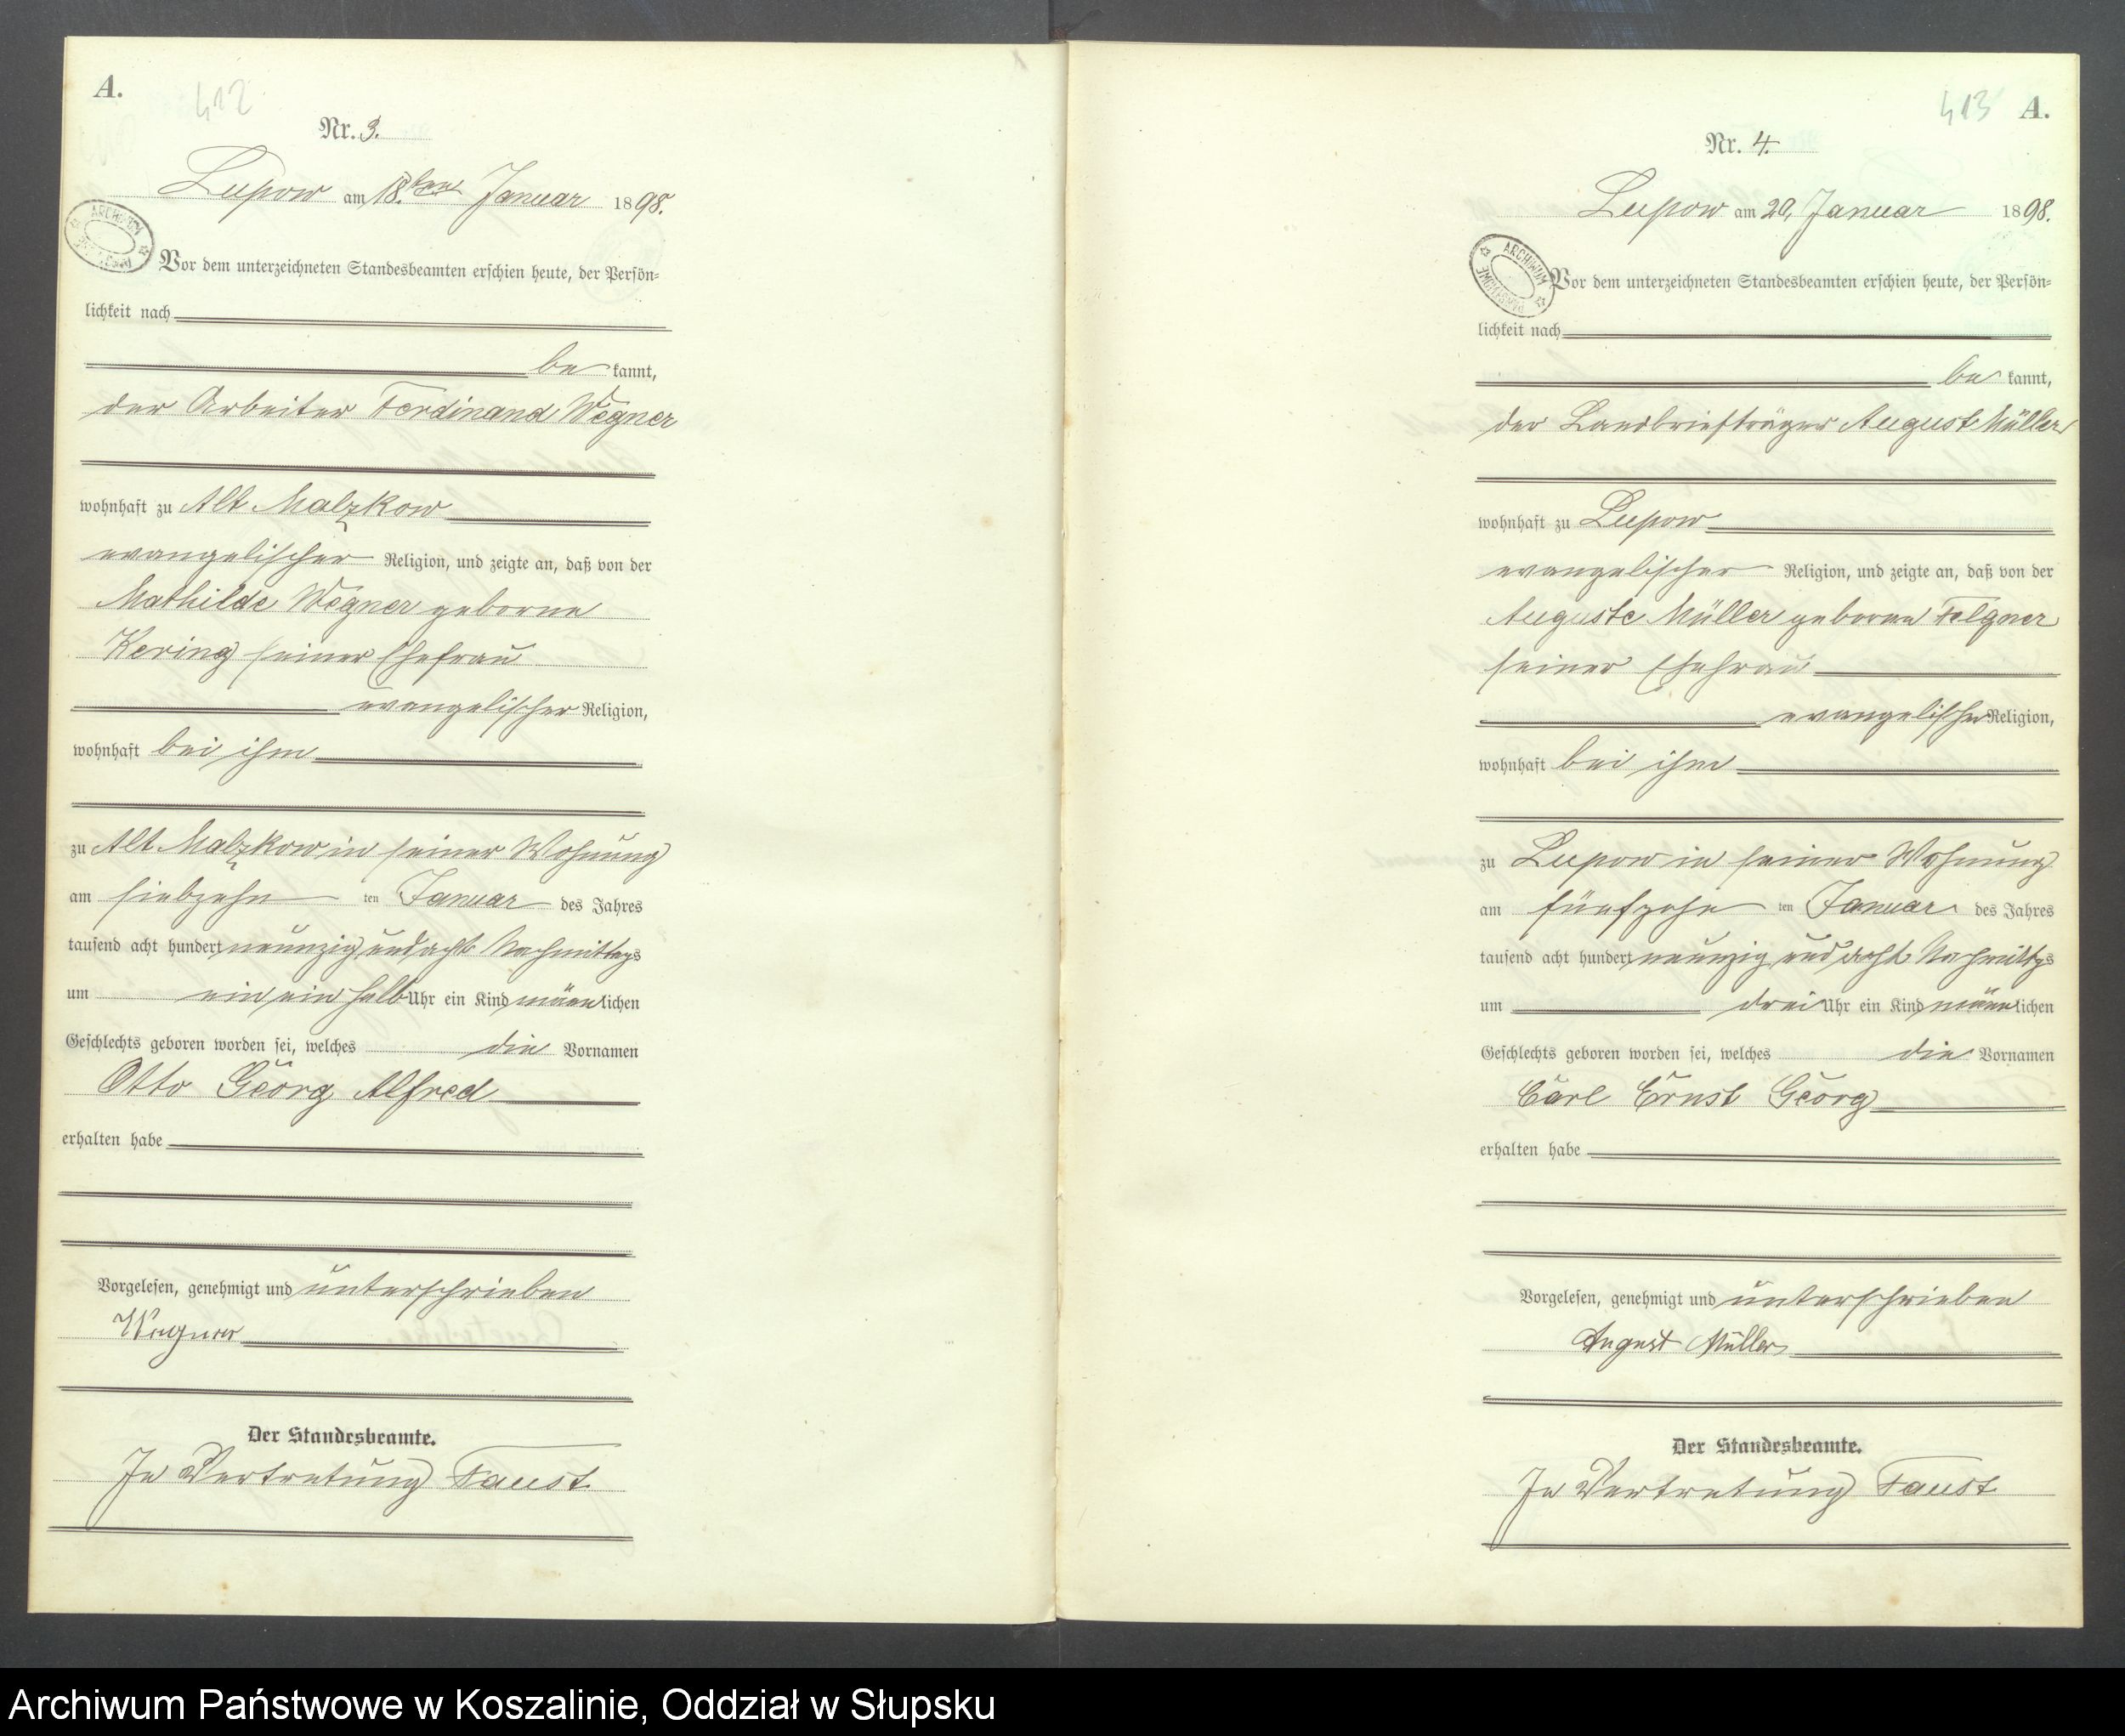 A.
412
Nr. 3.
Lupow am 18.ten Januar 1898.
ARCHIWUM
Vor dem unterzeichneten Standesbeamten erschien heute, der Persön-
lichkeit nach
be kannt,
der Arbeiter Ferdinand Wegner
wohnhaft zu Alt Malzkow
evangelischer Religion, und zeigte an, daß von der
Mathilde Wegner geborne
Kering seiner Ehefrau
evangelischer Religion,
wohnhaft bei ihm
zu Alt Malzkow in seiner Wohnung
am siebzehn ten Januar des Jahres
tausend acht hundert neunzig und acht Nachmittags
um ein ein halb Uhr ein Kind männlichen
Geschlechts geboren worden sei, welches die Vornamen
Otto Georg Alfred
erhalten habe
Vorgelesen, genehmigt und unterschrieben
Wegner
Der Standesbeamte.
In Vertretung Faust.
413 A.
Nr. 4.
Lupow am 20. Januar 1898.
ARCHIWUM
Vor dem unterzeichneten Standesbeamten erschien heute, der Persön-
lichkeit nach
be kannt,
der Landbriefträger August Müller
wohnhaft zu Lupow
evangelischer Religion, und zeigte an, daß von der
Auguste Müller geborne Felgner
seiner Ehefrau
evangelischer Religion,
wohnhaft bei ihm
zu Lupow in seiner Wohnung
am fünfzehn ten Januar des Jahres
tausend acht hundert neunzig und acht Nachmittgs
um drei Uhr ein Kind männlichen
Geschlechts geboren worden sei, welches die Vornamen
Carl Ernst Georg
erhalten habe
Vorgelesen, genehmigt und unterschrieben
August Müller
Der Standesbeamte.
In Vertretung Faust.
Archiwum Państwowe w Koszalinie, Oddział w Słupsku